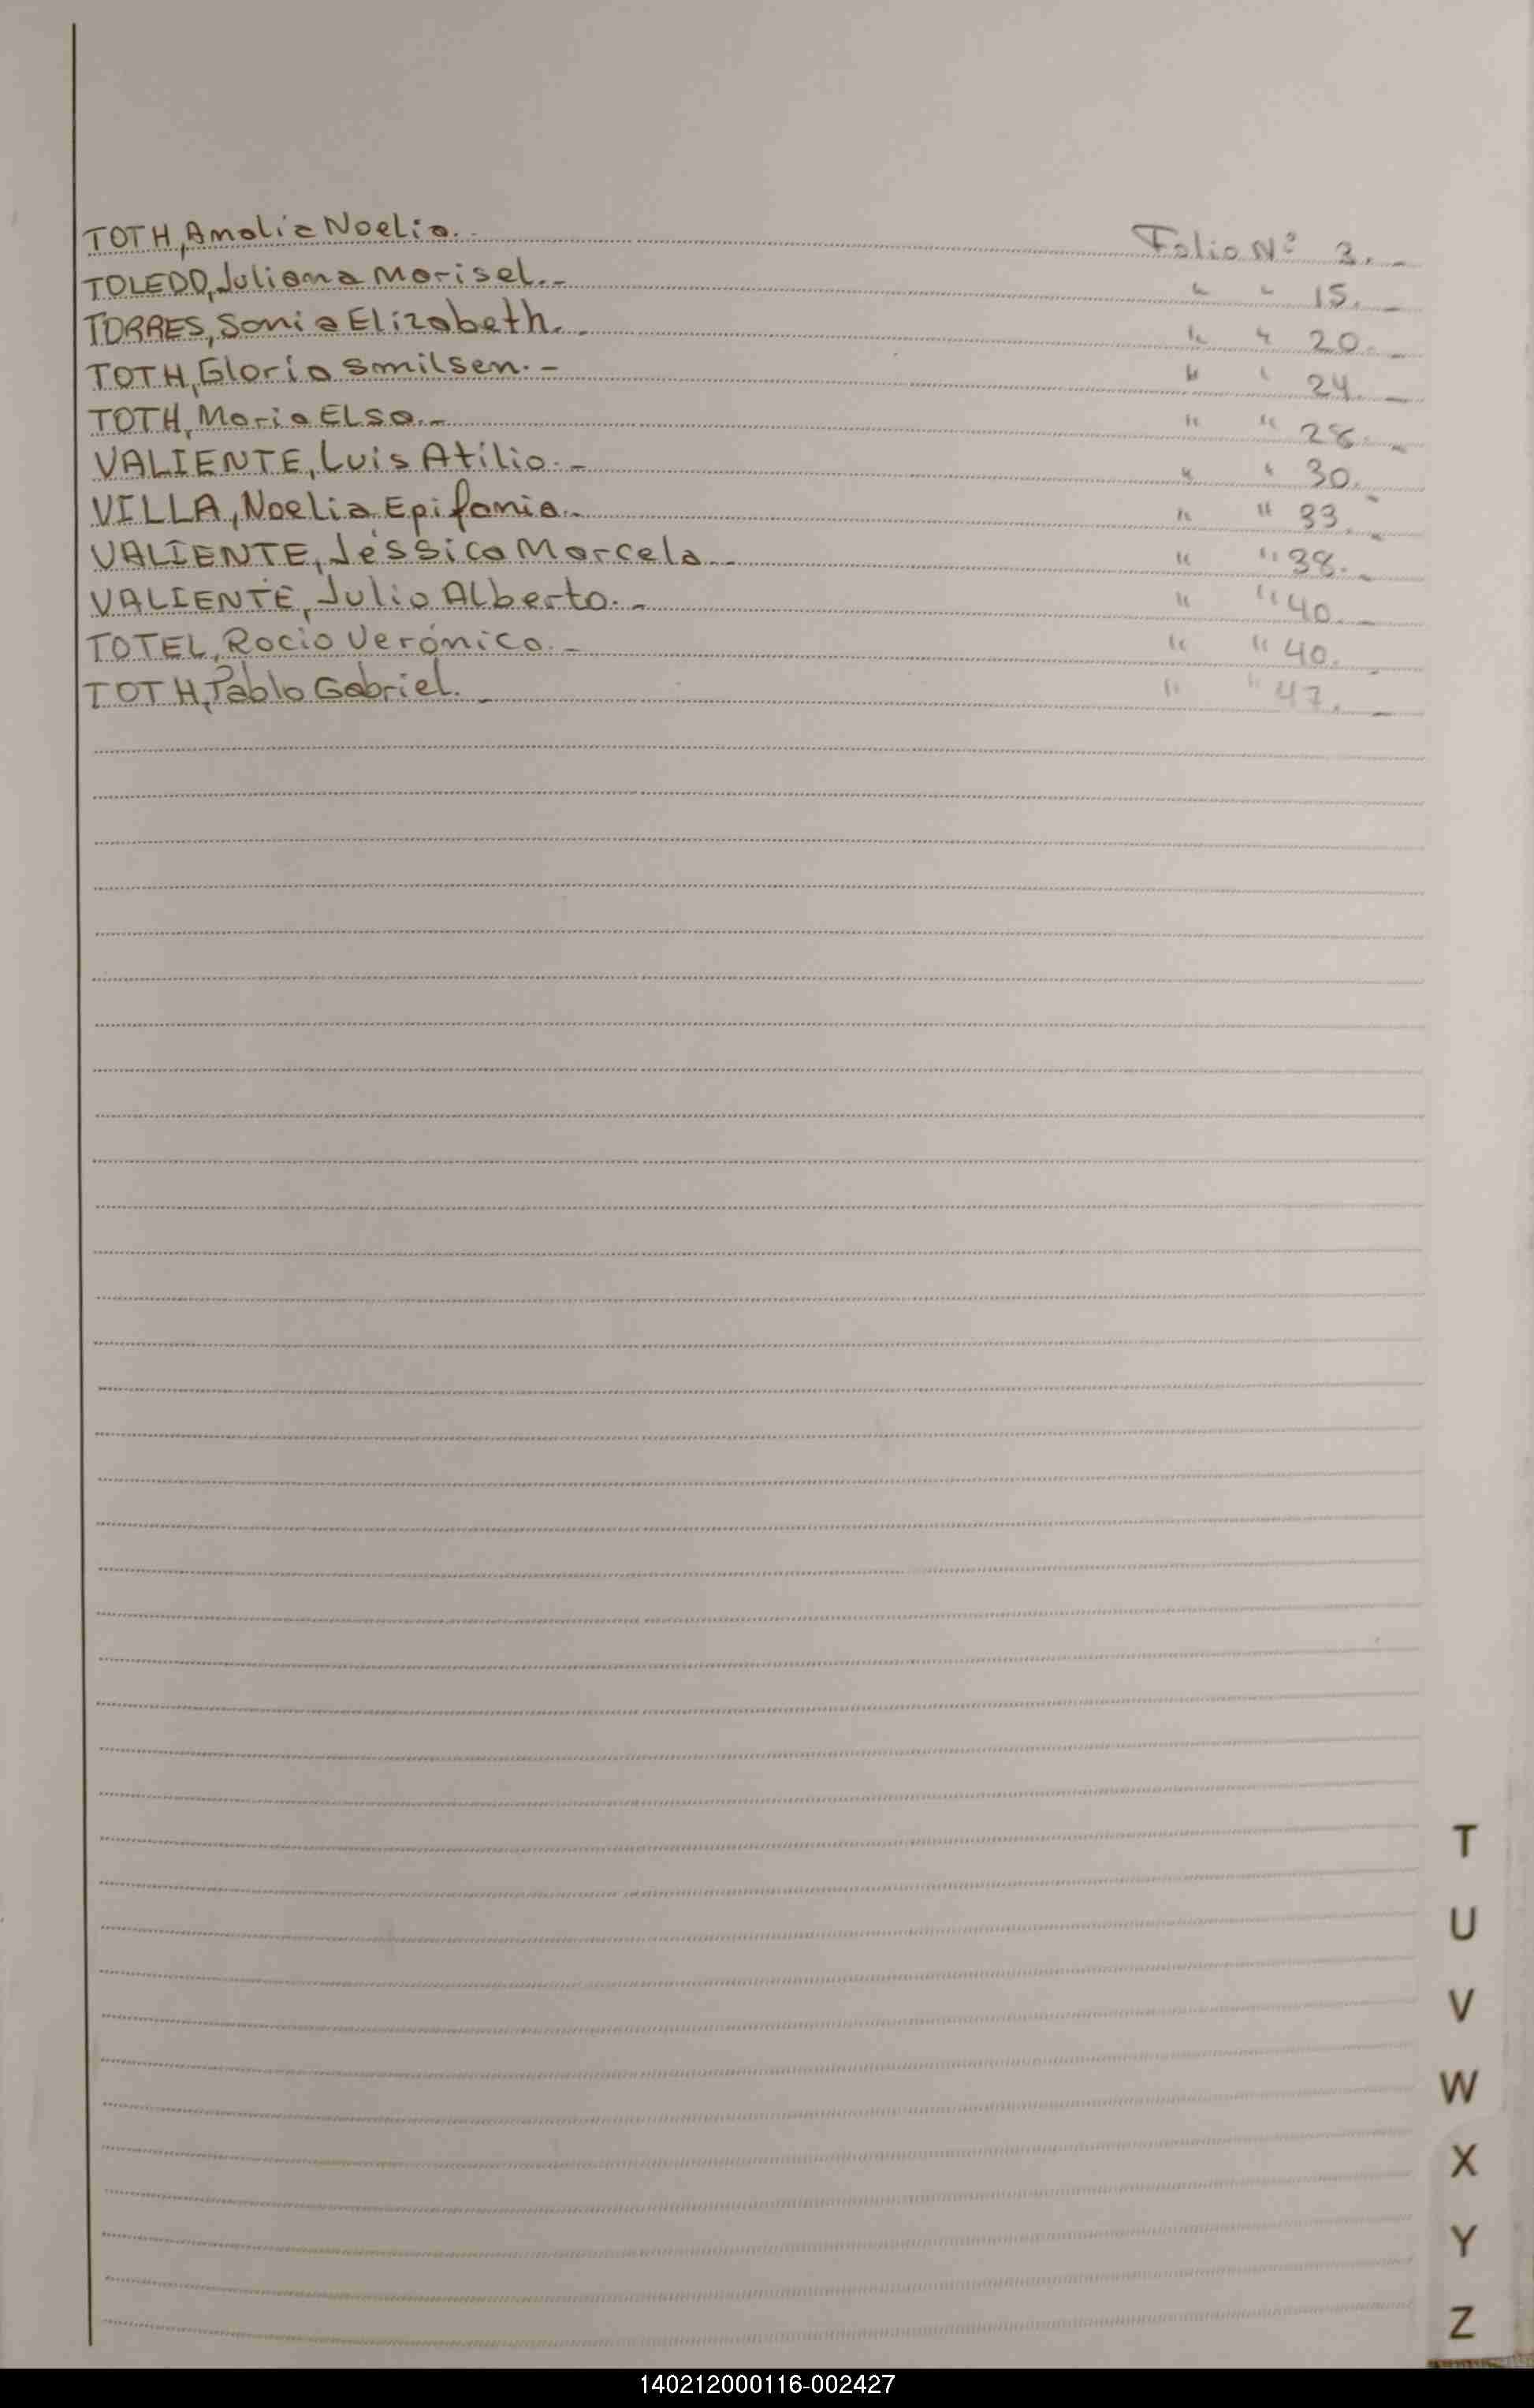 TOTH, Amalia Noelia.- Folio Nº 3.-
TOLEDO, Juliana Marisel.- " " 15.-
TORRES, Sonia Elizabeth.- " " 20.-
TOTH, Gloria Smilsen.- " " 24.-
TOTH, Maria Elsa.- " " 28.-
VALIENTE, Luis Atilio.- " " 30.-
VILLA, Noelia Epifania.- " " 33.-
VALIENTE, Jéssica Marcela.- " " 38.-
VALIENTE, Julio Alberto.- " " 40.-
TOTEL, Rocio Verónica.- " " 40.-
TOTH, Pablo Gabriel.- " " 47.-
T
U
V
W
X
Y
Z
140212000116-002427